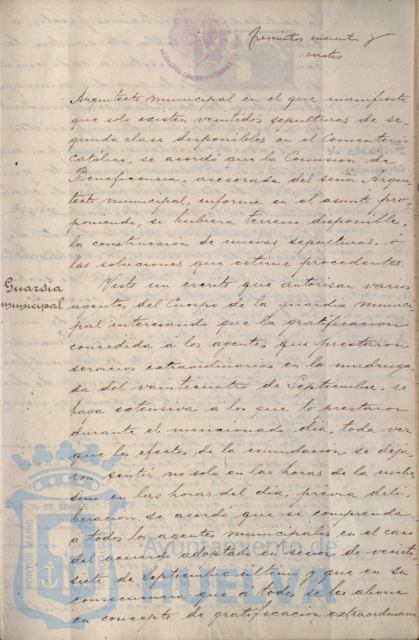 trescientos cincuenta y
cuatro
Arquitecto municipal en el que manifiesta
que solo existen veintidos sepulturas de se-
gunda clase disponibles en el Cementerio
Católico, se acordó que la Comisión de
Beneficencia, asesorada del señor Arqui-
tecto municipal, informe en el asunto pro-
poniendo, si hubiera terreno disponible,
la construcción de nuevas sepulturas o
las soluciones que estime procedentes.
Guardia
municipal
Visto un escrito que autorizan varios
agentes del Cuerpo de la guardia munici-
pal interesando que la gratificación
concedida a los agentes que prestaron
servicios extraordinarios en la madruga-
da del veinticuatro de Septiembre, se
haga extensiva a los que lo prestaron
durante el mencionado día, toda vez
que los efectos de la inundación se deja-
ron sentir no solo en las horas de la noche
sino en las horas del día; previa deli-
beración, se acordó que se comprenda
a todos los agentes municipales en el caso
del acuerdo adoptado en sesión de veinte
siete de septiembre último y que en su
consecuencia que a todos se les abone
en concepto de gratificación extraordinaria
Ayuntamiento de
HUELVA
PORTUS MARIS
ET TERRÆ
CUSTODIA